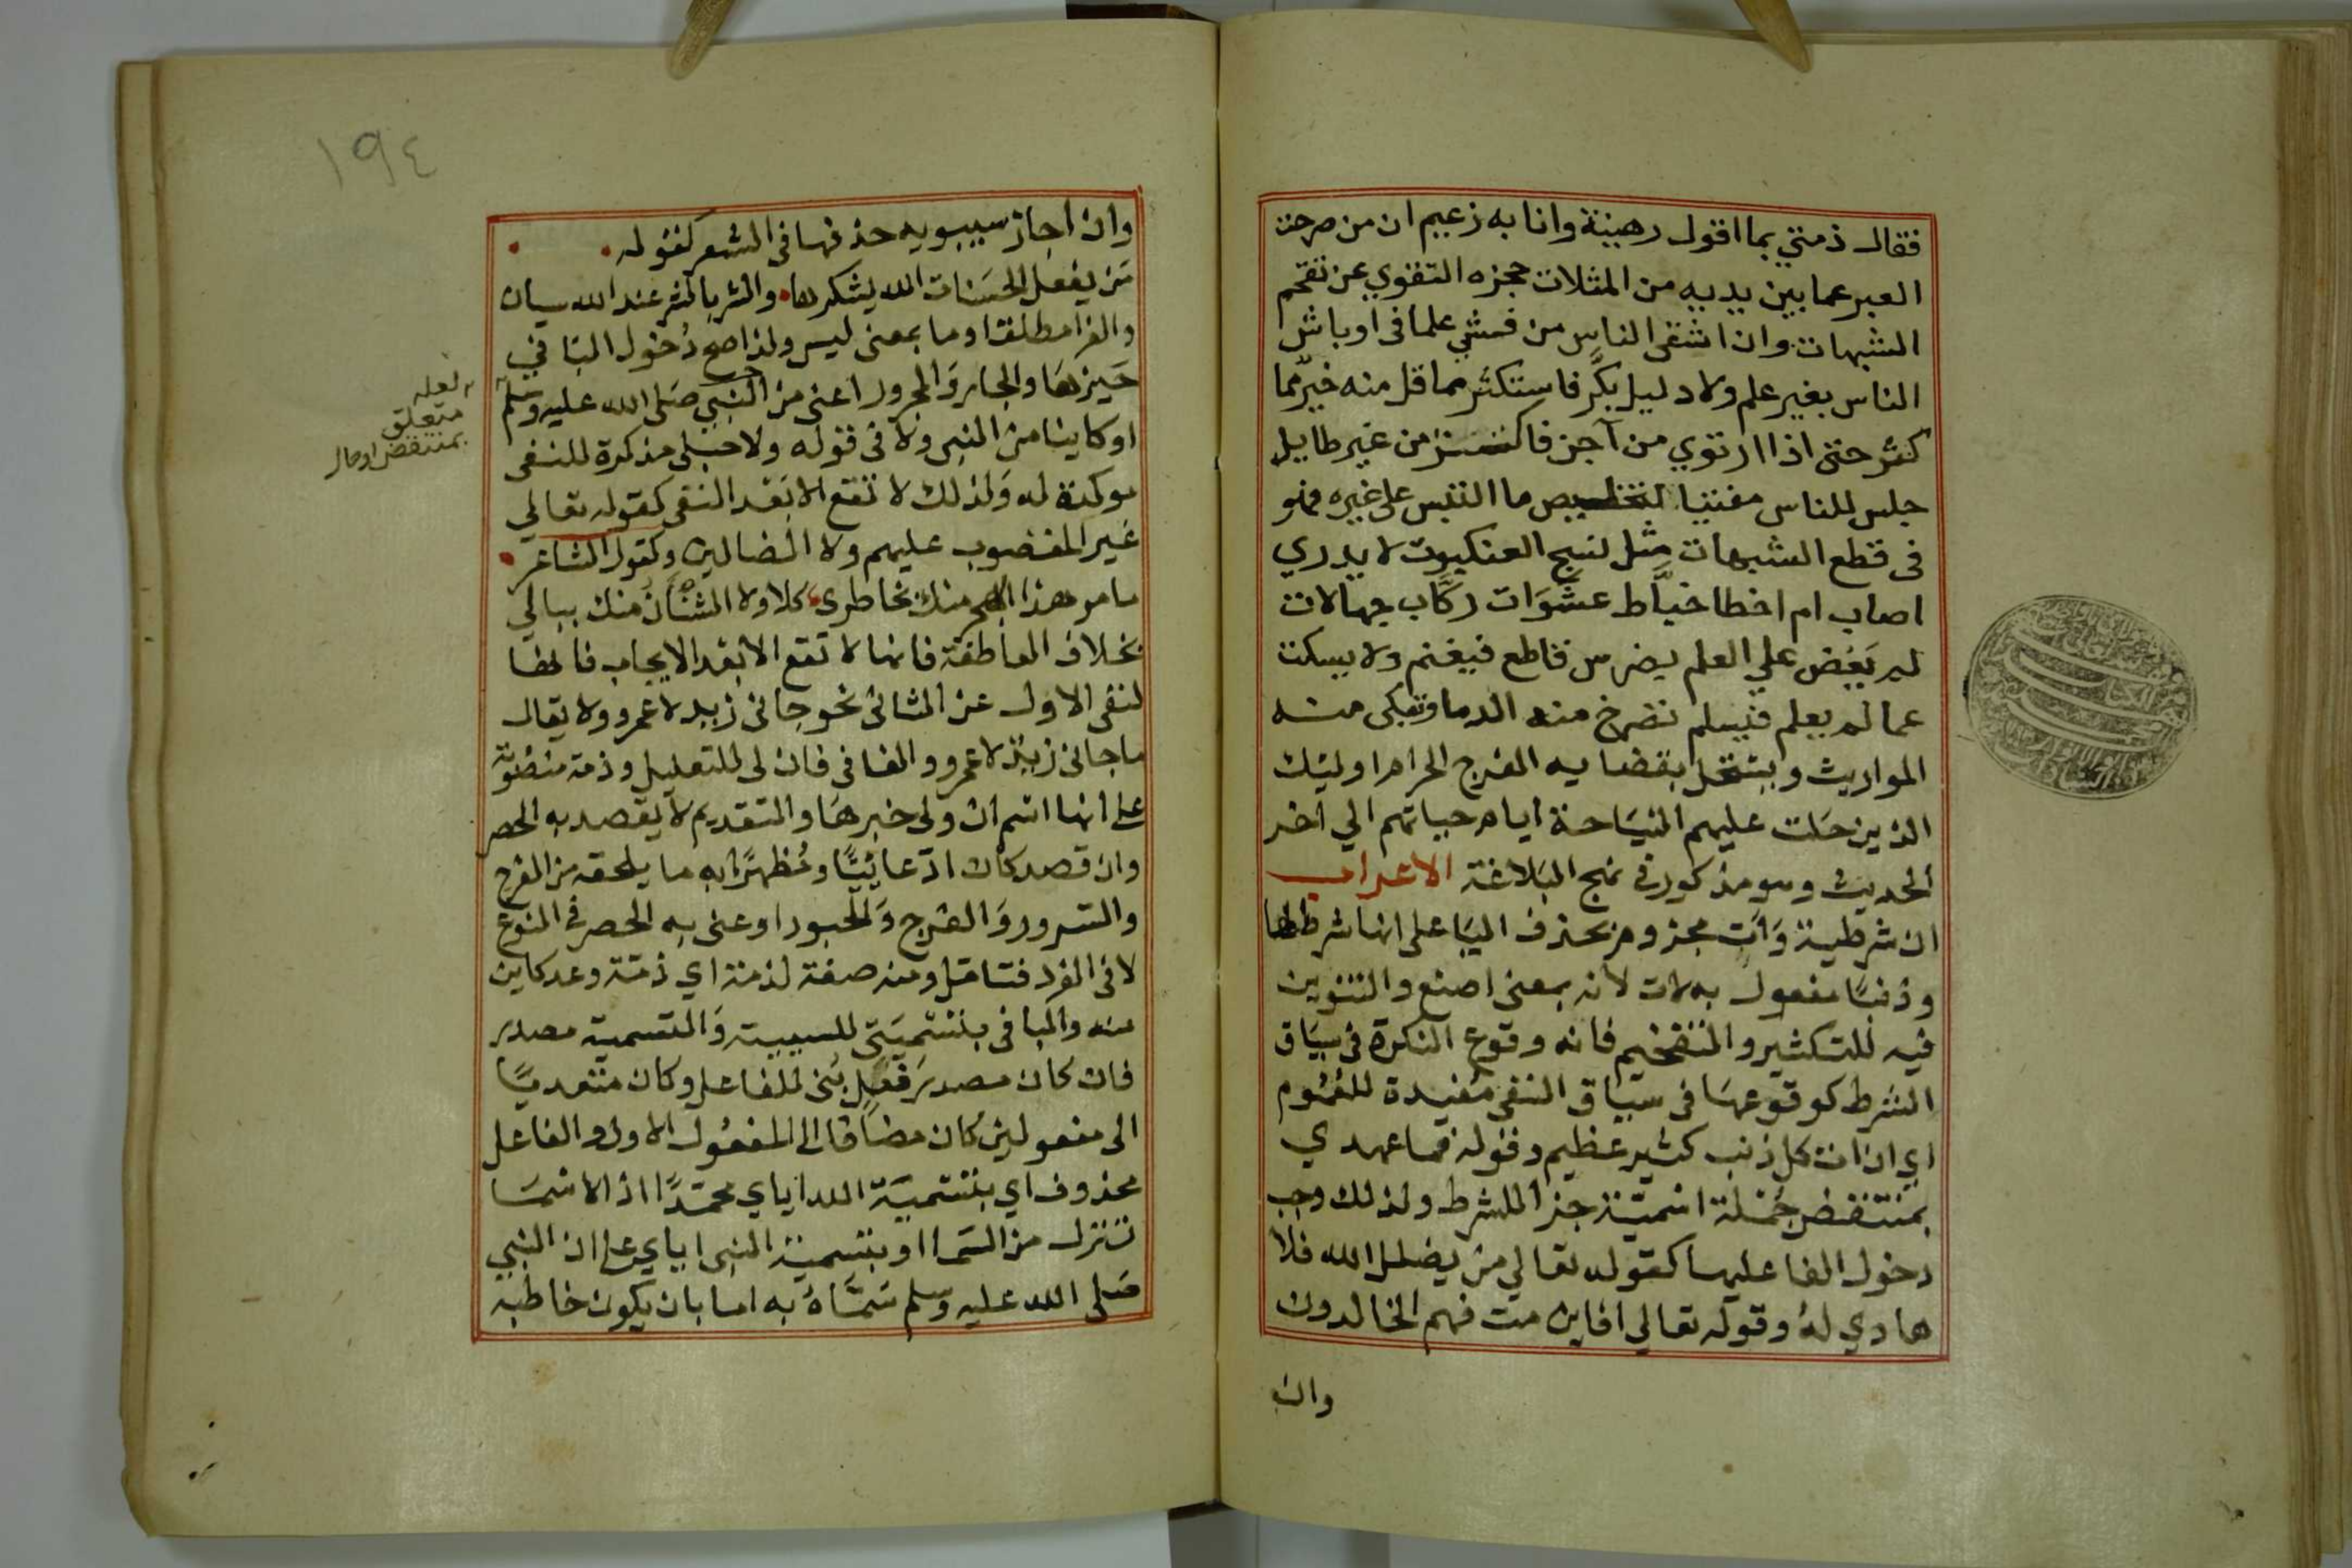 فقال ذمتي بما اقول رهينة وانا به زعيم ان من صرحت
العبر عما بين يديه من المثلات حجزه التقوي عن تقحم
الشبهات وان اشقى الناس من قمش علما في اوباش
الناس بغير علم ولا دليل بكَّر فاستكثر مما قل منه خير مّما
كثر حتى اذا ارتوي من آجن فاكتنز من غير طايل
جلس للناس مفتيا لتخليص ما التبس على غيره فهو
فى قطع الشبهات مثل نسج العنكبوت لا يدري
اصاب ام اخطا خبّاط عشَوَات ركّاب جهالات
لم يَعَض علي العلم بضرس قاطع فيغنم ولا يسكت
عما لم يعلم فيسلم تصرخ منه الدما وتبكى منه
المواريث ويستحل بقضايه الفرج الحرام اوليك
الذين حَلت عليهم النيَاحة ايام حياتهم الي اخر
الحديث وهو مذكور في نهج البَلاغة الاعراب
ان شرطية وَآتِ مجزوم بحذف اليَا على انها شرطها
وذنبًا مفعول به لات لانه بمعنى اصنع والتنوين
فيه للتكثير والتفخيم فانه وقوع النكرة فى سيَاق
الشرط كوقوعهَا فى سيَاق النفى مفيدة للعُمُوم
اي ان ات كل ذنب كثير عظيم وقوله فما عهدي
بمنتقض جُمْلة اسميّة جزا للشرط ولذلك وجب
دخول الفا عليها كقوله تعالي من يضلل الله فلا
هادي لهُ وقوله تعالي افاين مت فهم الخالدون
وان
١٩٤
وان اجاز سيبويه حذفها فى الشعر كقوله
مَن يفعل الحسَنات الله يشكرها والشر بالشر عند الله سيان
والفرا مطلقا وما بمعنى ليس ولذا صح دُخول البَا في
حَيزهَا والجار وَالمجرور اعنى من النبي صَلى الله عليه وسَلم
او كاينا من النبى ولا فى قوله ولا حبلى مذكرة للنفى
موكدة له وَلذلك لا تقع الا بَعْد النفى كقوله تعالي
غَير المغضوب عليهم ولا الضالين وكقول الشاعر
ما مر هذا الهجر منك بخاطرى كلا ولا الشنأن منك ببالي
بخلاف العاطفة فانها لا تقع الا بعْد الايجاب فانها
لنفى الاول عن الثانى نحو جانى زيد لا عمرو ولا يقال
ما جانى زيد لا عمرو والفا فى فان لى للتعليل وذمة منصُوبَة
على انها اسم ان ولى خبرهَا والتقديم لا يقصد به الحصر
وان قصد كان ادّعائيًّا ومُظهرًا به ما يلحقه من الفرح
والسرور وَالفرج وَالحبور او عنى به الحصر فى النوع
لا فى الفرد فتامّل ومنه صفة لذمة اي ذمّة وعد كاين
منه والبا فى بتسْميَتى للسببية وَالتسمية مصدر
فان كان مصدرَ فعِلٍ بُنى للفاعل وكان متعديًا
الى مفعولين كان مضَافا الى المفعُول الاول والفاعل
محذوف اي بتسْميَة الله اياي محمَدًا اذ الاسْمَا
تنزل من السَما او بتسمية النبى اياي على ان النبي
صَلى الله عليه وسلم سَمَّاهُ به اما بان يكون خاطبه
لعله
متعلق
بمنتقض او حال